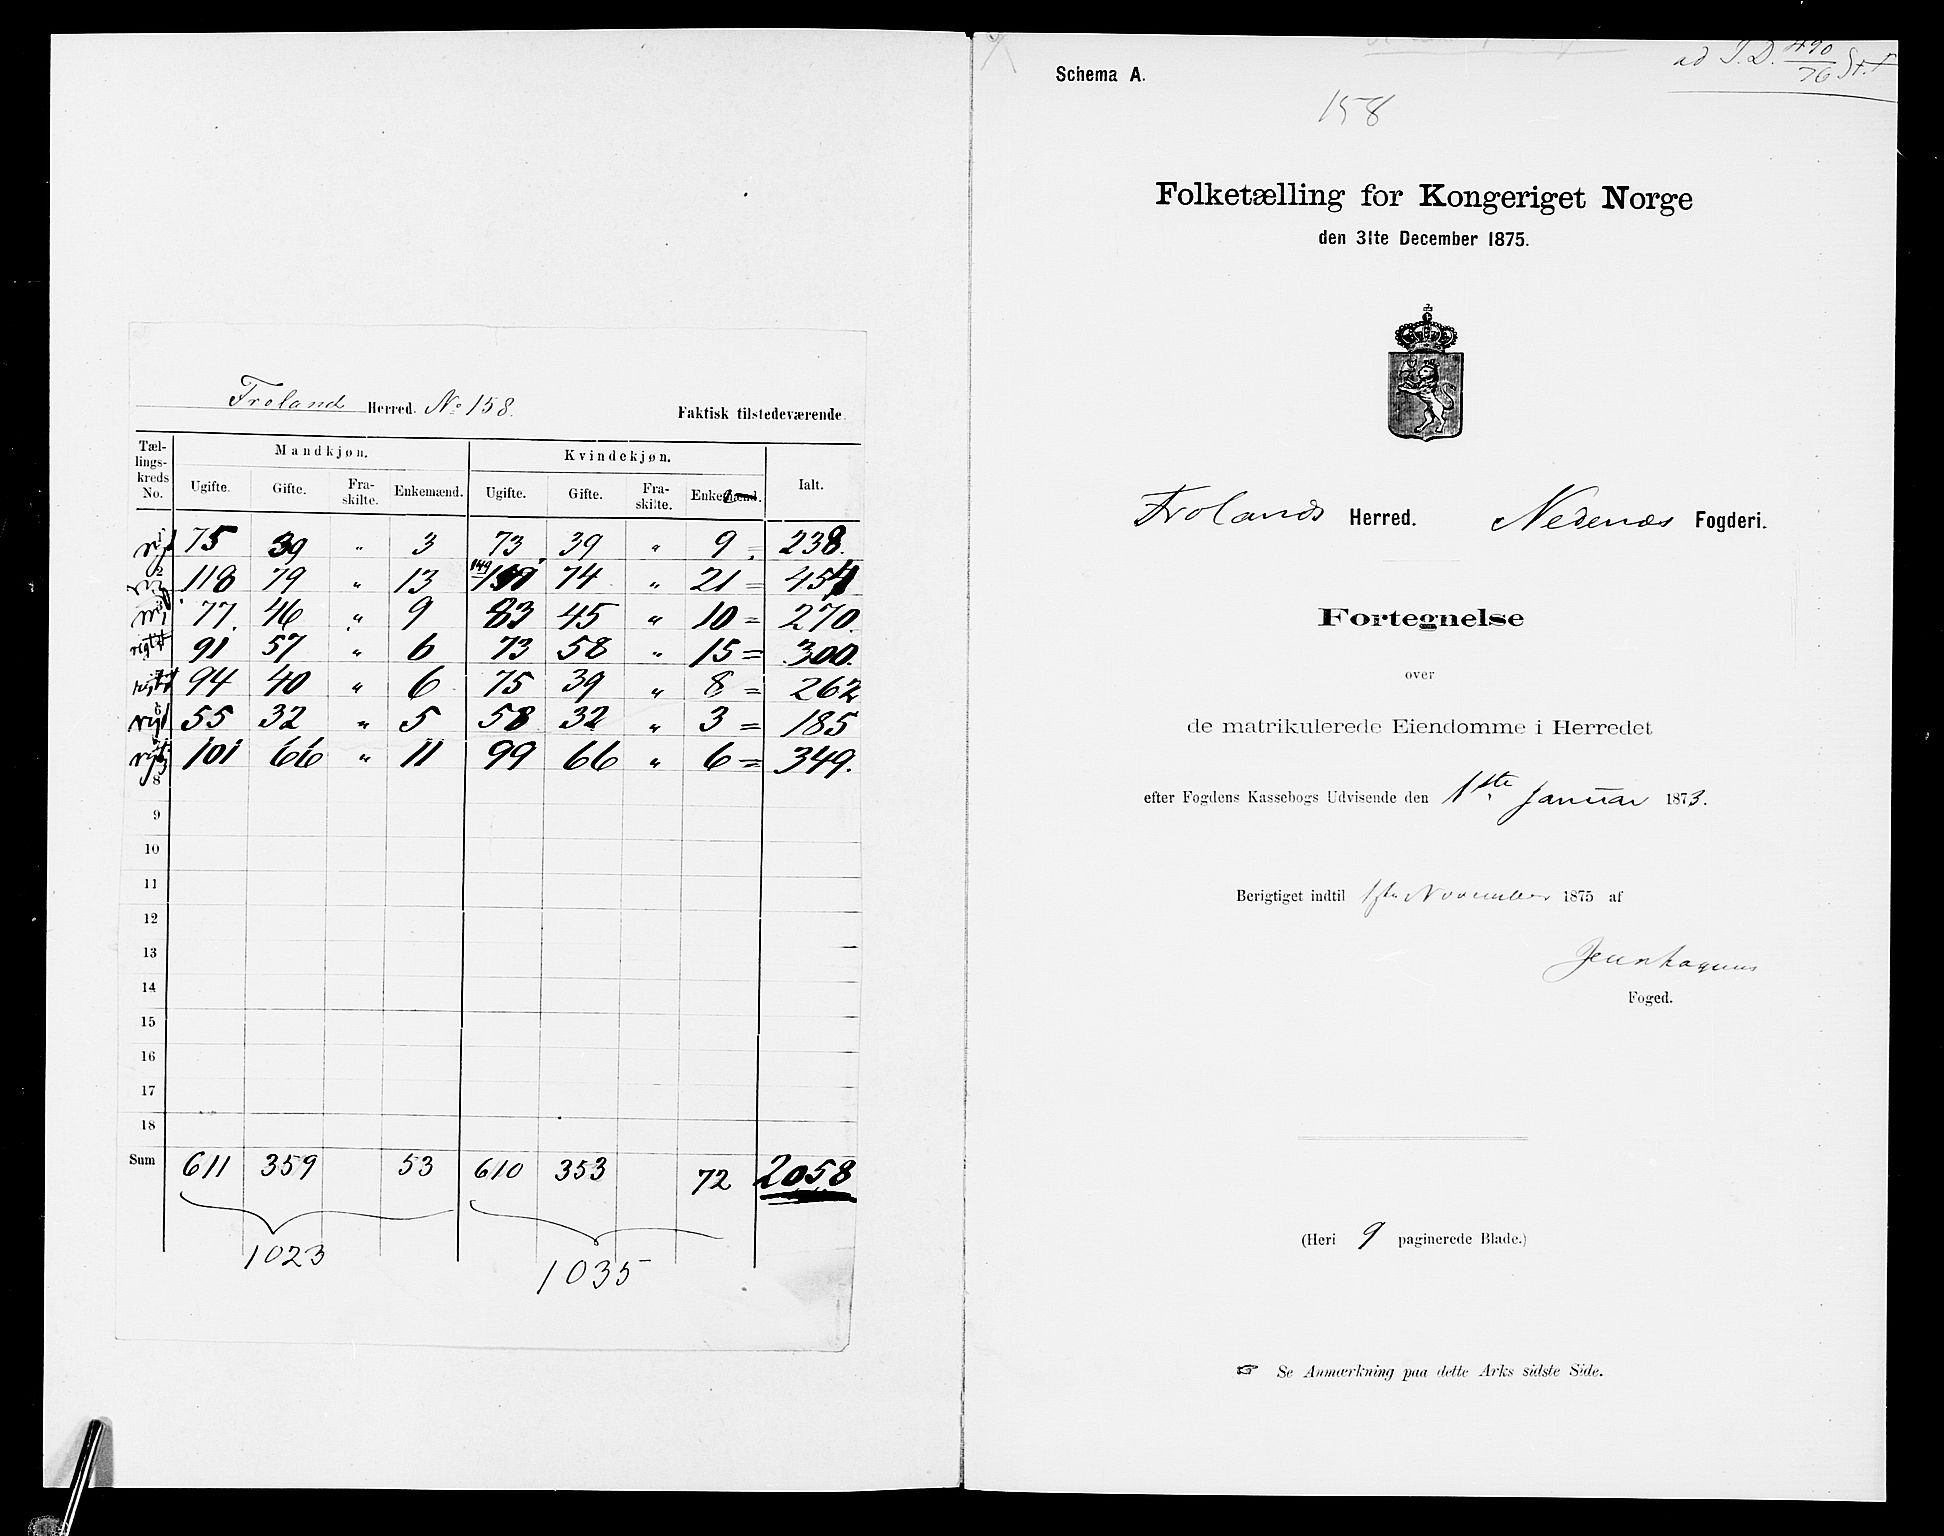 Froland Herred. No 158.
Faktisk tilstedeværende.
Tællingskreds No. Mandkjøn. Kvindekjøn. Ialt.
Ugifte. Gifte. Fraskilte. Enkemænd. Ugifte. Gifte. Fraskilte. Enkemænd.
75 39 " 3 73 39 " 9 = 238.
118 79 " 13 149 74 " 21 = 454
77 46 " 9 83 45 " 10 = 270.
rigtigt 91 57 " 6 73 58 " 15 = 300.
94 40 " 6 75 39 " 8 = 262
55 32 " 5 58 32 " 3 = 185
101 66 " 11 99 66 " 6 = 349.
8
9
10
11
12
13
14
15
16
17
18
Sum 611 359 53 610 353 72 2058
1023 1035
Schema A.
ad J.D. 490/76 St.
158
Folketælling for Kongeriget Norge
den 31te December 1875.
Frolands Herred. Nedenæs Fogderi.
Fortegnelse
over
de matrikulerede Eiendomme i Herredet
efter Fogdens Kassebogs Udvisende den 1ste Januar 1873.
Berigtiget indtil 1ste November 1875 af
Foged.
(Heri 9 paginerede Blade.)
☞ Se Anmærkning paa dette Arks sidste Side.